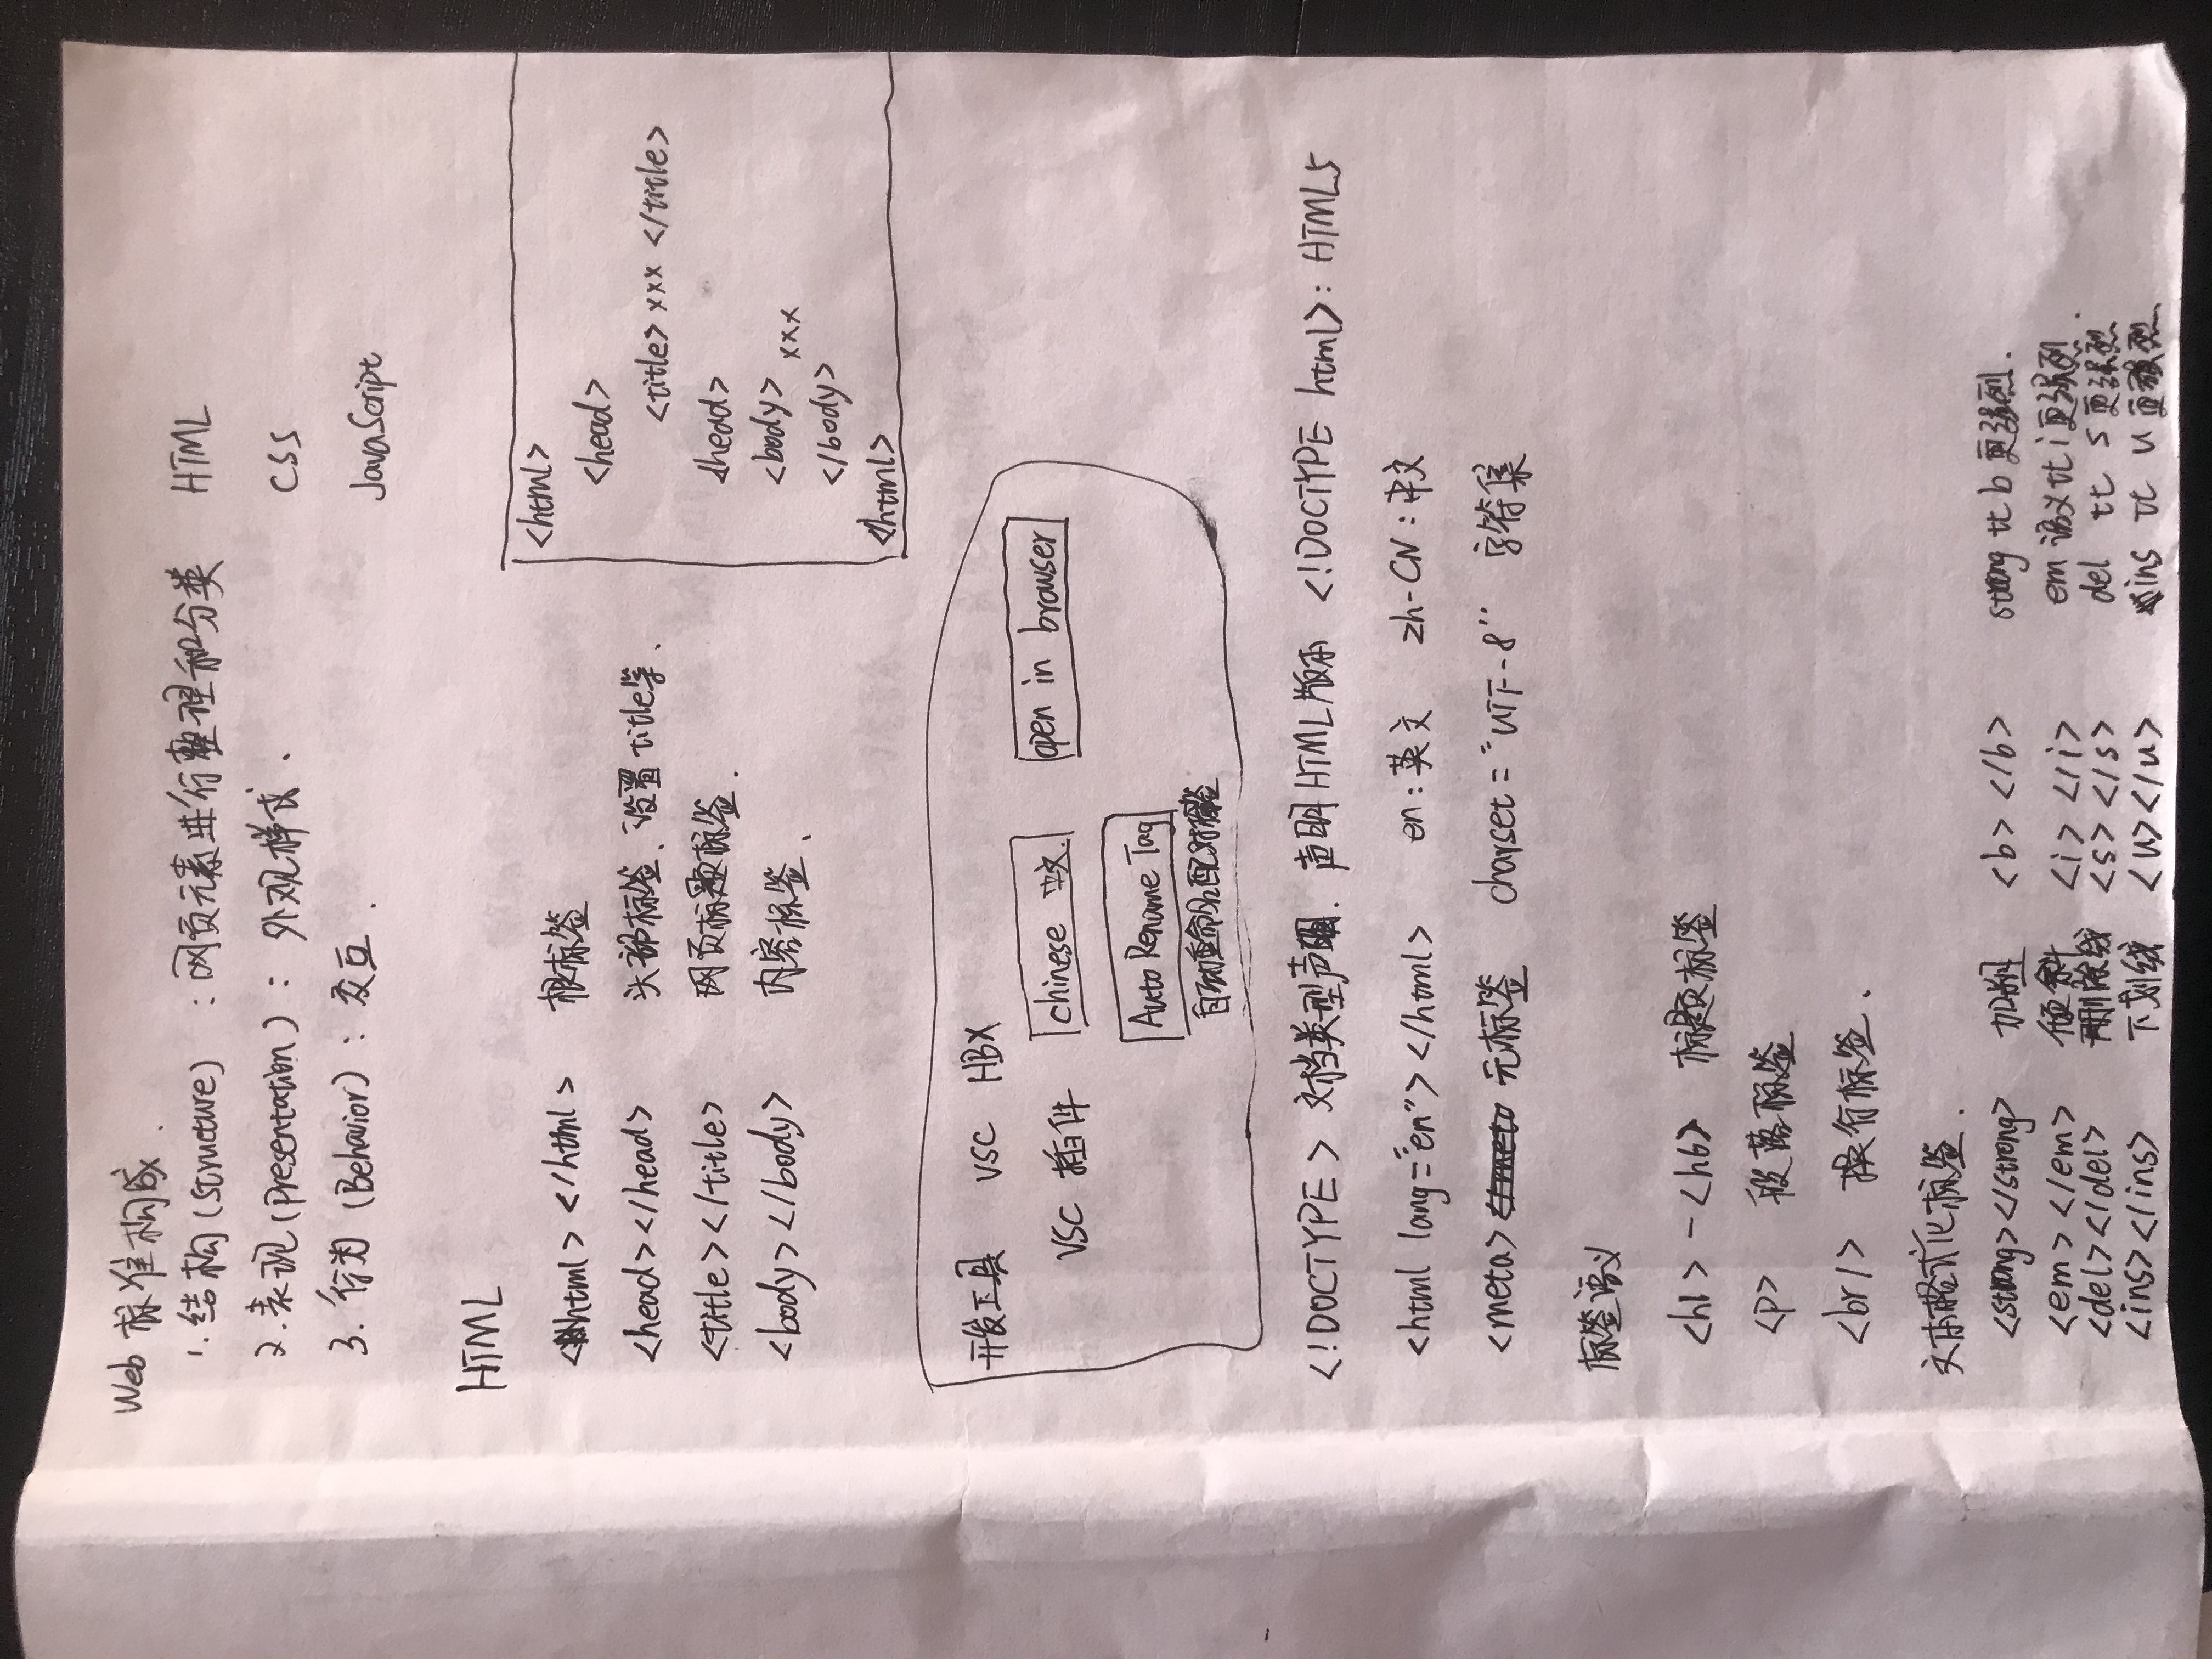 Web 标准构成.
1.结构(structure) : 网页元素进行整理和分类 HTML
2.表现(presentation) : 外观样式. CSS
3.行为(Behavior) : 交互. JavaScript
HTML
<html></html> 根标签
<head></head> 头部标签、设置title等.
<title></title> 网页标题标签.
<body></body> 内容标签、
<html>
<head>
<title> xxx </title>
</head>
<body> xxx
</body>
</html>
开发工具 VSC HBX
VSC 插件 chinese 中文. open in browser
Auto Rename Tag
自动重命名配对标签
<!DOCTYPE> 文档类型声明. 声明HTML版本 <!DOCTYPE html>: HTML5
<html lang="en"></html> en:英文 zh-CN:中文
<meta> 元标签 charset="UTF-8" 字符集
标签语义
<h1>-<h6> 标题标签
<p> 段落标签
<br/> 换行标签.
文本格式化标签.
<strong></strong> 加粗 <b></b> strong 比 b 更强烈.
<em></em> 倾斜 <i></i> em 语义比 i 更强烈.
<del></del> 删除线 <s></s> del 比 s 更强烈
<ins></ins> 下划线 <u></u> ins 比 u 更强烈.